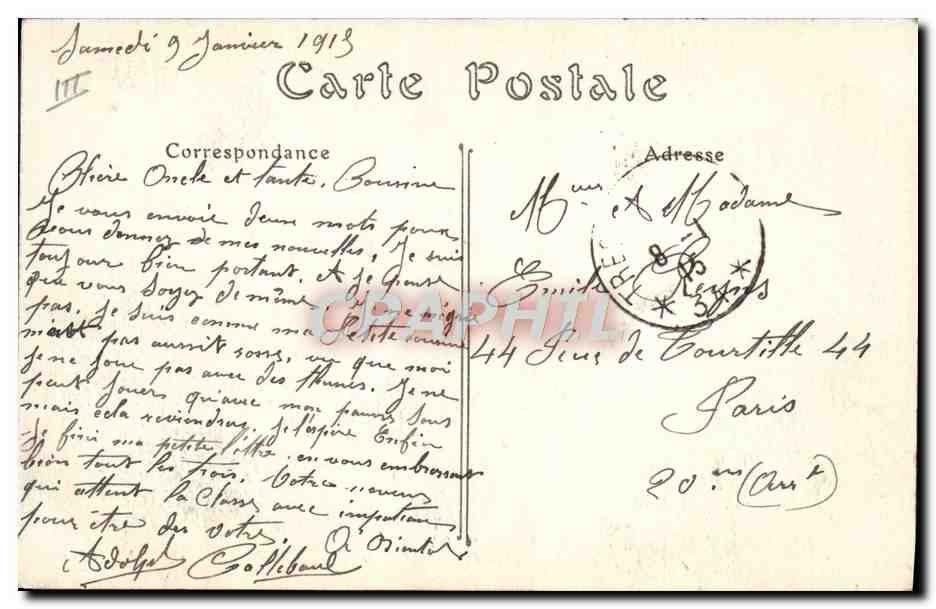 Samedi 9 Janvier 1915
III
Carte Postale
Correspondance
Adresse
Chère Oncle et tante. Cousine
Je vous envoie deux mots pour
vous donnez de mes nouvelles, Je suis
toujour bien portant. et Je pense
que vous soyez de même
pas. Je suis comme ma Petite
pas aussit ross, vu que moi
Je ne Joue pas avec des thunes. Je ne
peut Jouer qu'avec mon pauvre Sous
mais cela reviendras, Je l'espère Enfin
Je fini ma petite lettre en vous embrassant
bien tout les trois. Votre neveux
qui attent la Classe avec impatience
pour être des votres. A Bientot
Adolph Callebaut
M. et Madame
Emile
44 Rue de Tourtille 44
Paris
20 (Arr)
TRE
8
CRAPHIL